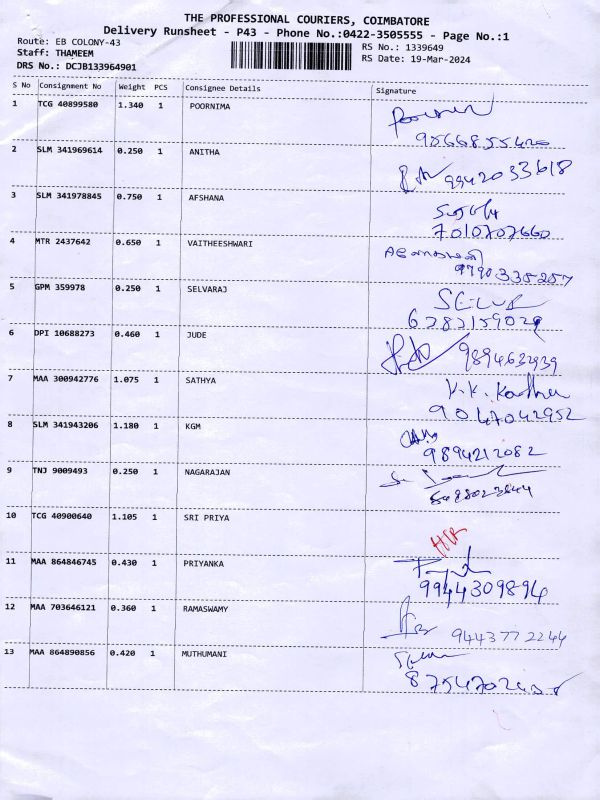 THE PROFESSIONAL COURIERS, COIMBATORE
Delivery Runsheet - P43 - Phone No.:0422-3505555 - Page No.:1
Route: EB COLONY-43
RS No.: 1339649
Staff: THAMEEM
RS Date: 19-Mar-2024
DRS No.: DCJB133964901
S No Consignment No Weight PCS Consignee Details Signature
1 TCG 40899580 1.340 1 POORNIMA
2 SLM 341969614 0.250 1 ANITHA
9942033618
3 SLM 341978845 0.750 1 AFSHANA
7010707660
4 MTR 2437642 0.650 1 VAITHEESHWARI
9790335257
5 GPM 359978 0.250 1 SELVARAJ
6282159029
6 DPI 10688273 0.460 1 JUDE
7 MAA 300942776 1.075 1 SATHYA
9047042952
8 SLM 341943206 1.180 1 KGM
9894212082
9 TNJ 9009493 0.250 1 NAGARAJAN
10 TCG 40900640 1.105 1 SRI PRIYA
11 MAA 864846745 0.430 1 PRIYANKA
9944309894
12 MAA 703646121 0.360 1 RAMASWAMY
9443772244
13 MAA 864890856 0.420 1 MUTHUMANI